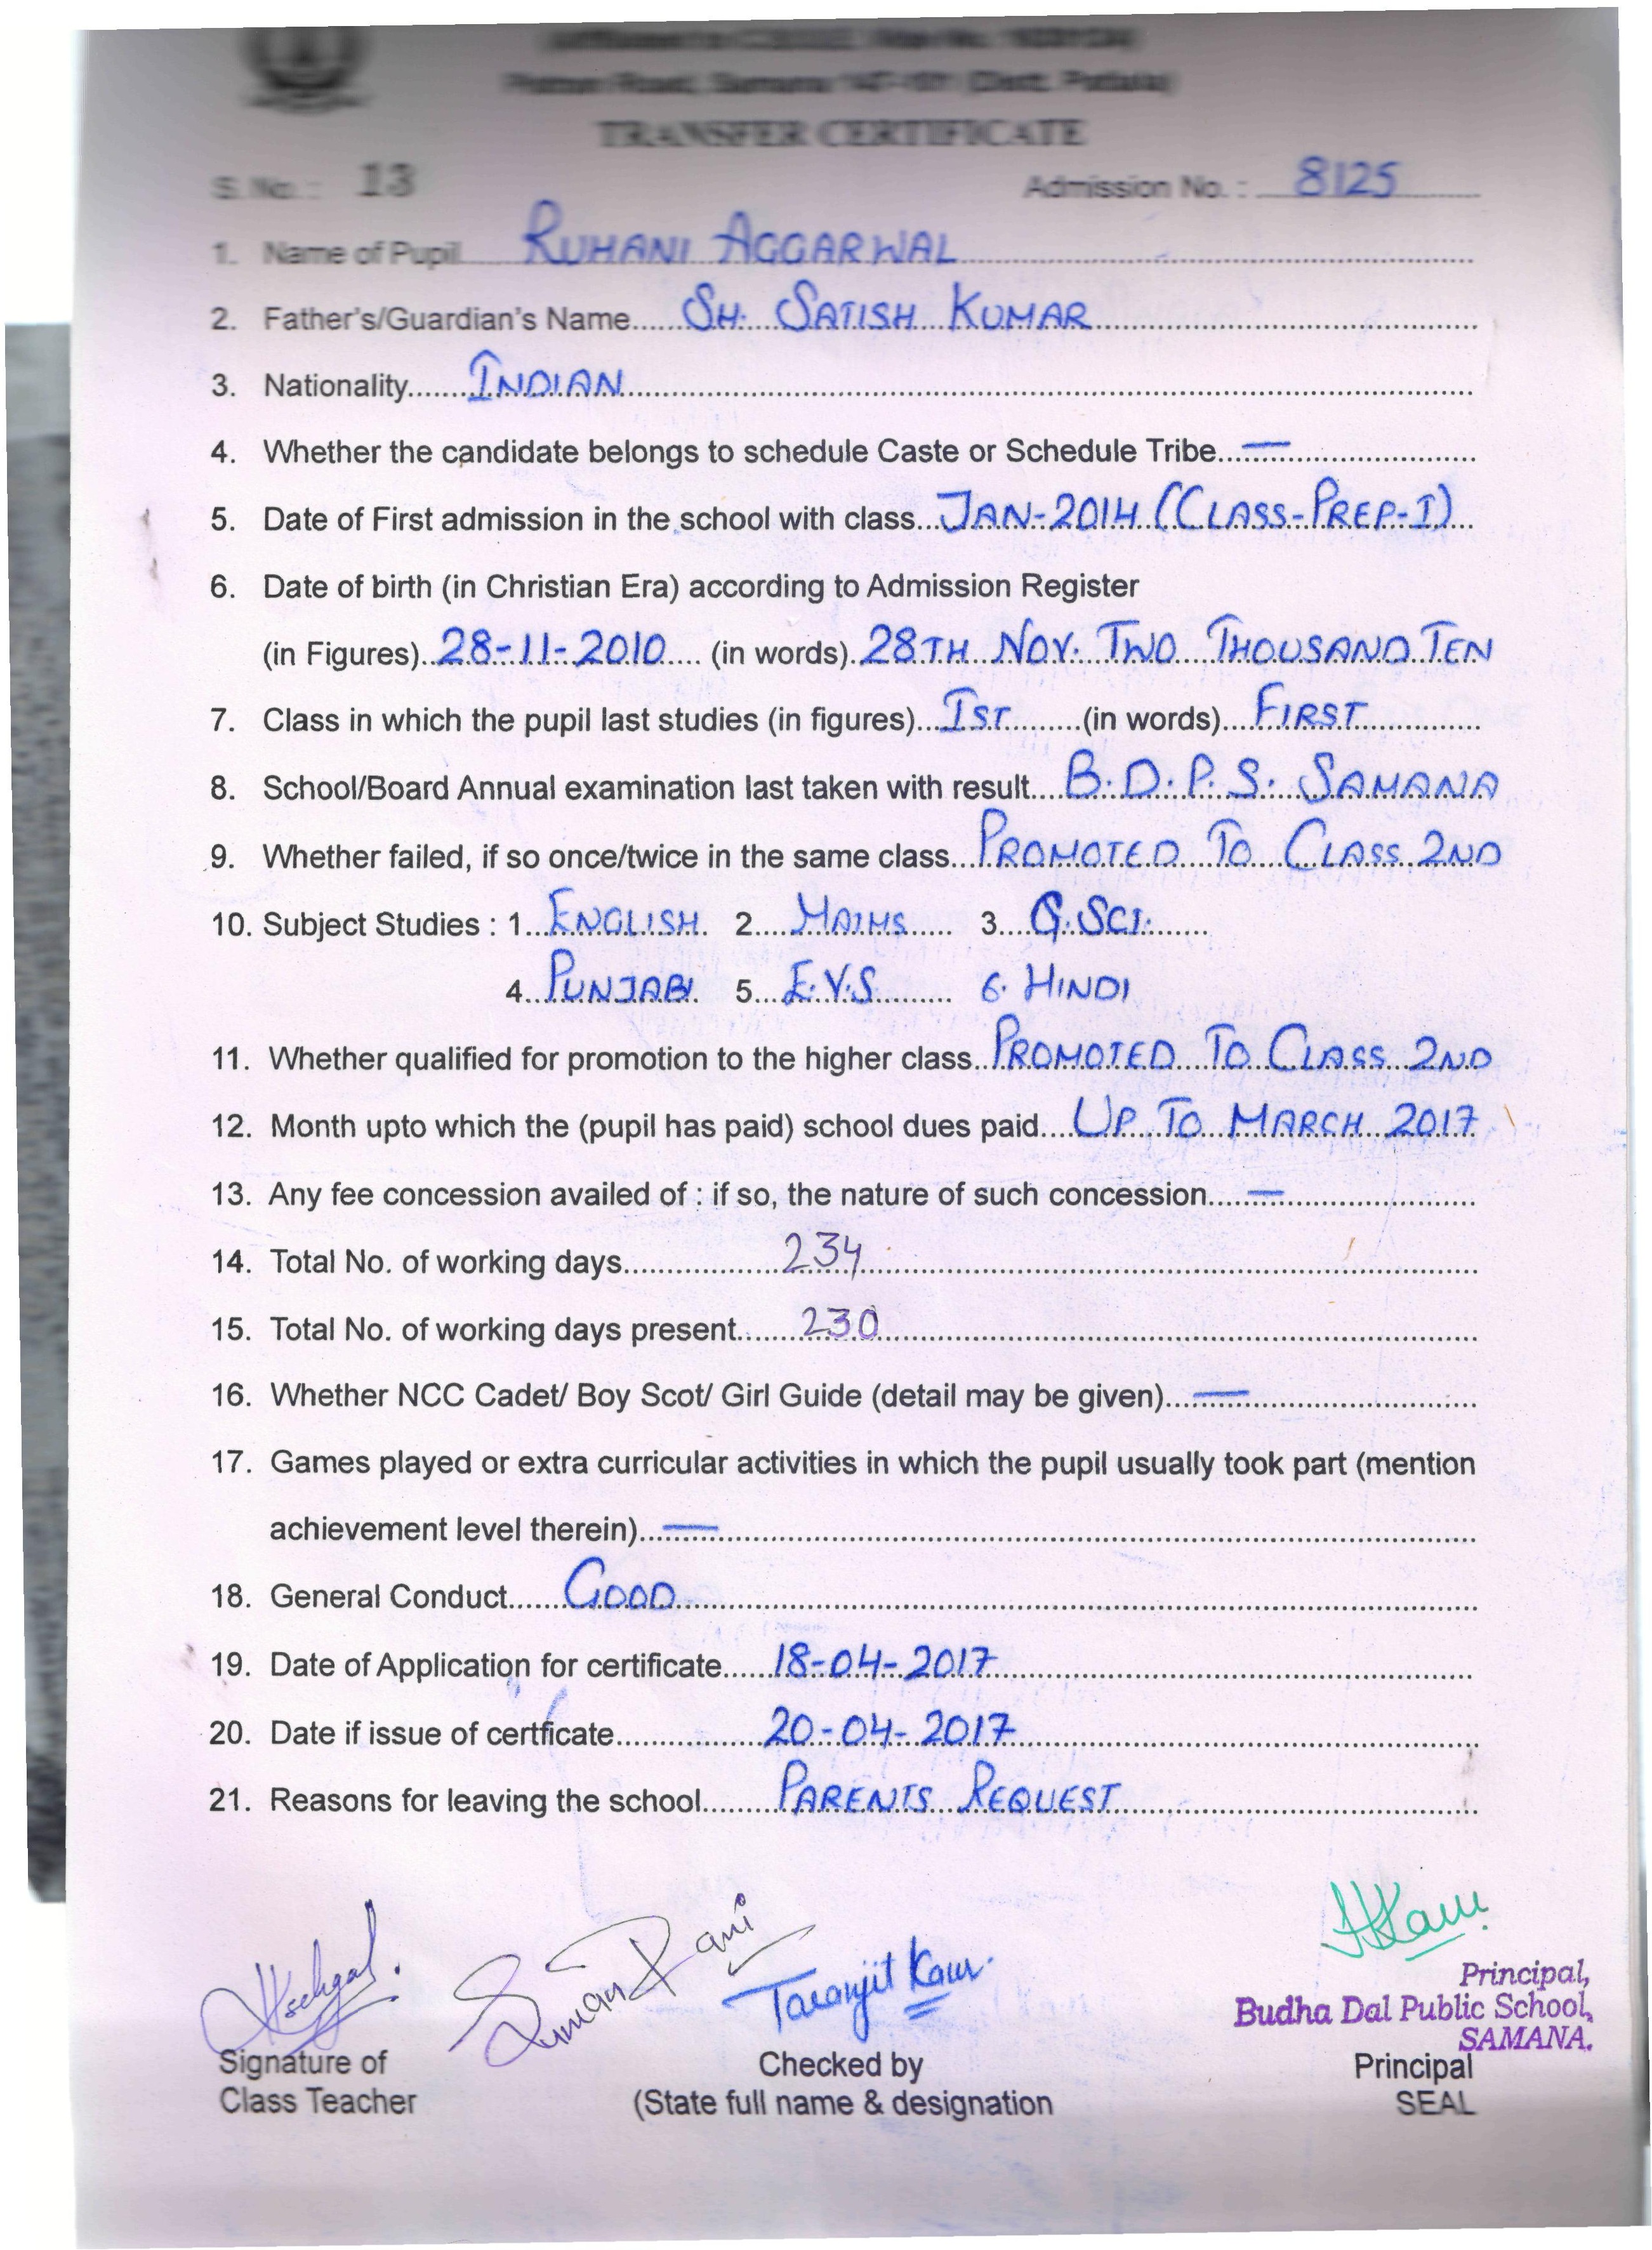 Road, Samana (Distt. Patiala)
TRANSFER CERTIFICATE
S. No. : 13 Admission No. : 8125
1. Name of Pupil RUHANI AGGARWAL
2. Father's/Guardian's Name SH. SATISH KUMAR
3. Nationality INDIAN
4. Whether the candidate belongs to schedule Caste or Schedule Tribe —
5. Date of First admission in the school with class JAN-2014 (CLASS-PREP-I)
6. Date of birth (in Christian Era) according to Admission Register
(in Figures) 28-11-2010 (in words) 28TH NOV. TWO THOUSAND TEN
7. Class in which the pupil last studies (in figures) IST (in words) FIRST
8. School/Board Annual examination last taken with result B.D.P.S. SAMANA
9. Whether failed, if so once/twice in the same class PROMOTED TO CLASS 2ND
10. Subject Studies : 1 ENGLISH 2 MATHS 3 G.SCI.
4 PUNJABI 5 E.V.S 6. HINDI
11. Whether qualified for promotion to the higher class PROMOTED TO CLASS 2ND
12. Month upto which the (pupil has paid) school dues paid UP TO MARCH 2017
13. Any fee concession availed of : if so, the nature of such concession —
14. Total No. of working days 234
15. Total No. of working days present 230
16. Whether NCC Cadet/ Boy Scot/ Girl Guide (detail may be given) —
17. Games played or extra curricular activities in which the pupil usually took part (mention
achievement level therein) —
18. General Conduct GOOD
19. Date of Application for certificate 18-04-2017
20. Date if issue of certficate 20-04-2017
21. Reasons for leaving the school PARENTS REQUEST
Suman Rani Taranjit Kaur
Principal,
Budha Dal Public School,
SAMANA.
Signature of Checked by Principal
Class Teacher (State full name & designation SEAL